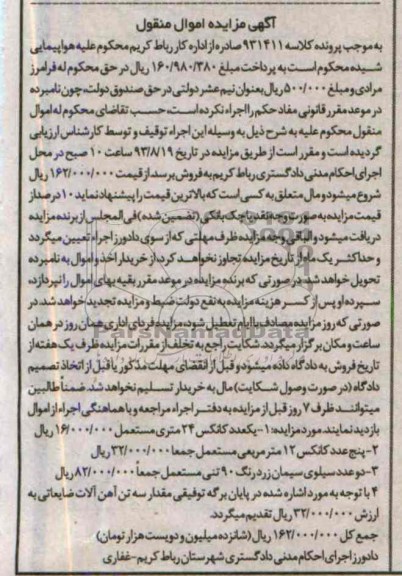 آگهی مزایده اموال منقول
به موجب پرونده کلاسه ۹۳۱۴۱۱ صادره از اداره کار رباط کریم محکوم علیه هواپیمایی
شیده محکوم است به پرداخت مبلغ ۱۶۰/۹۸۰/۳۸۰ ریال در حق محکوم له فرامرز
مرادی و مبلغ ۵۰۰/۰۰۰ ریال بعنوان نیم عشر دولتی در حق صندوق دولت، چون نامبرده
در موعد مقرر قانونی مفاد حکم را اجراء نکرده است، حسب تقاضای محکوم له اموال
منقول محکوم علیه به شرح ذیل به وسیله این اجراء توقیف و توسط کارشناس ارزیابی
گردیده است و مقرر است از طریق مزایده در تاریخ ۹۳/۸/۱۹ ساعت ۱۰ صبح در محل
اجرای احکام مدنی دادگستری رباط کریم به فروش برسد از قیمت ۱۶۲/۰۰۰/۰۰۰ ریال
شروع میشود و مال متعلق به کسی است که بالاترین قیمت را پیشنهاد نماید ۱۰ درصد از
قیمت مزایده به صورت وجه نقد یا چک بانکی (تضمین شده) فی المجلس از برنده مزایده
دریافت میشود و الباقی وجه مزایده ظرف مهلتی که از سوی دادورز اجراء تعیین میگردد
و حداکثر یک ماه از تاریخ مزایده تجاوز نخواهد کرد، از خریدار اخذ و اموال به نامبرده
تحویل خواهد شد. در صورتی که برنده مزایده در موعد مقرر بقیه بهای اموال را نپردازد
سپرده او پس از کسر هزینه مزایده به نفع دولت ضبط و مزایده تجدید خواهد شد، در
صورتی که روز مزایده مصادف با ایام تعطیل شود، مزایده فردای اداری همان روز در همان
ساعت و مکان برگزار میگردد. شکایت راجع به تخلف از مقررات مزایده ظرف یک هفته از
تاریخ فروش به دادگاه داده میشود و قبل از انقضای مهلت مذکور یا قبل از اتخاذ تصمیم
دادگاه (در صورت وصول شکایت) مال به خریدار تسلیم نخواهد شد. ضمناً طالبین
میتوانند ظرف ۷ روز قبل از مزایده به دفتر اجراء مراجعه و با هماهنگی اجراء از اموال
بازدید نمایند. مورد مزایده: ۱- یکعدد کانکس ۲۴ متری مستعمل ۱۶/۰۰۰/۰۰۰ ریال
۲- پنج عدد کانکس ۱۲ متر مربعی مستعمل جمعاً ۳۲/۰۰۰/۰۰۰ ریال
۳- دو عدد سیلوی سیمان زرد رنگ ۹۰ تنی مستعمل جمعاً ۸۲/۰۰۰/۰۰۰ ریال
۴ با توجه به مورد اشاره شده در پایان برگه توقیفی مقدار سه تن آهن آلات ضایعاتی به
ارزش ۳۲/۰۰۰/۰۰۰ ریال تقدیم میگردد.
جمع کل ۱۶۲/۰۰۰/۰۰۰ ریال (شانزده میلیون و دویست هزار تومان)
دادورز اجرای احکام مدنی دادگستری شهرستان رباط کریم - غفاری